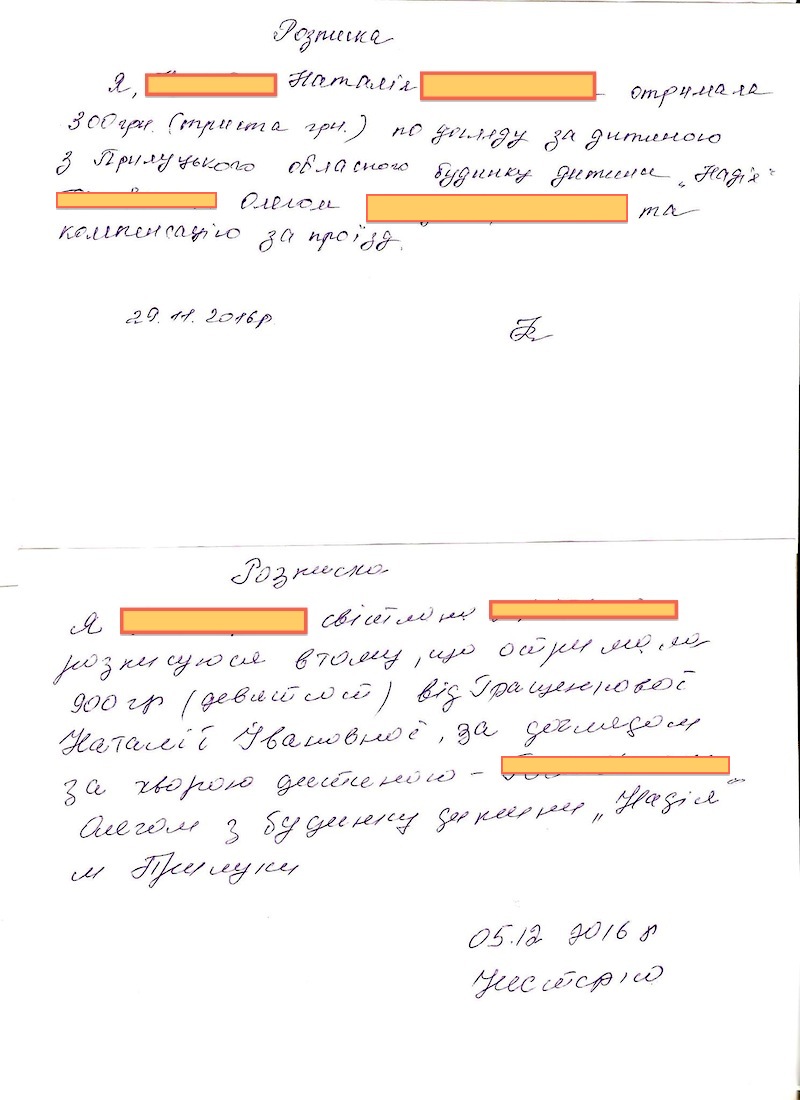 Розписка
Я, Наталія отримала
300 грн. (триста грн.) по догляду за дитиною
з Прилуцького обласного будинку дитини „Надія"
Олегом та
компенсацію за проїзд.
29.11.2016р.
Розписка
Я світлана
розписуюся втому, що отримала
900 гр (девятсот) від Гращенкової
Наталії Івановної, за доглядом
за хворою дитиною –
Олегом з будинку дитини „Надія"
м Прилуки
05.12 2016 р